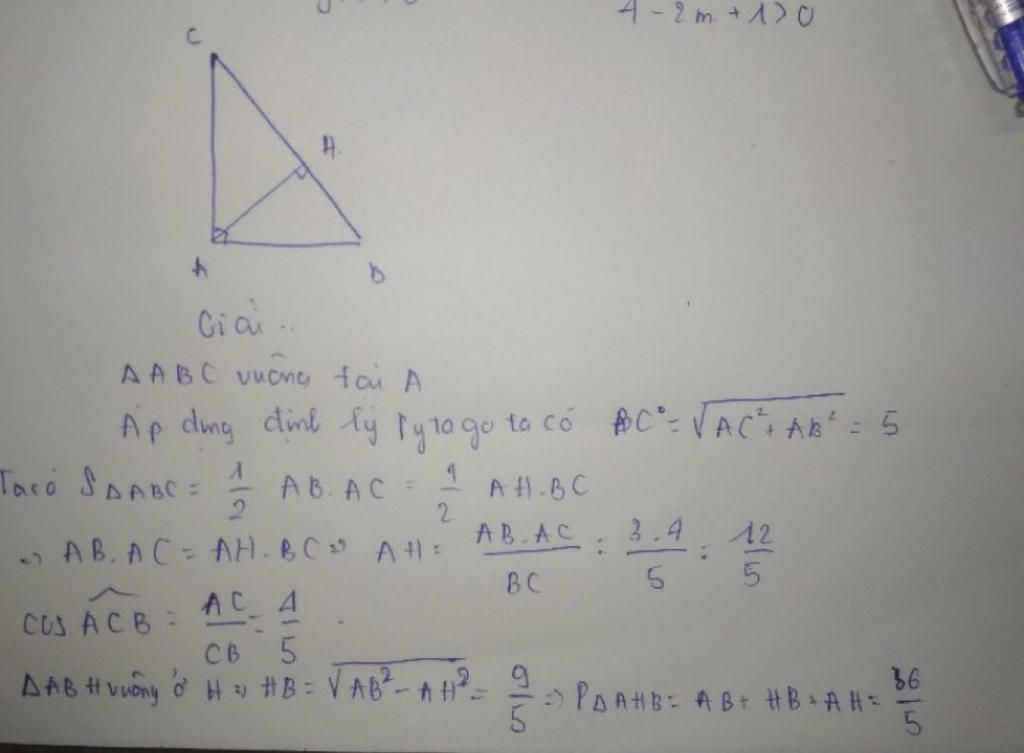 4 - 2m + 1 > 0
C
H
A
B
Giải ..
ΔABC vuông tại A
Áp dụng định lý Pytago ta có BC = √(AC² + AB²) = 5
Ta có S ΔABC = 1/2 AB.AC = 1/2 AH.BC
=> AB.AC = AH.BC => AH = AB.AC/BC = 3.4/5 = 12/5
cos ACB = AC/CB = 4/5
ΔABH vuông ở H => HB = √(AB² - AH²) = 9/5 => PΔAHB = AB + HB + AH = 36/5